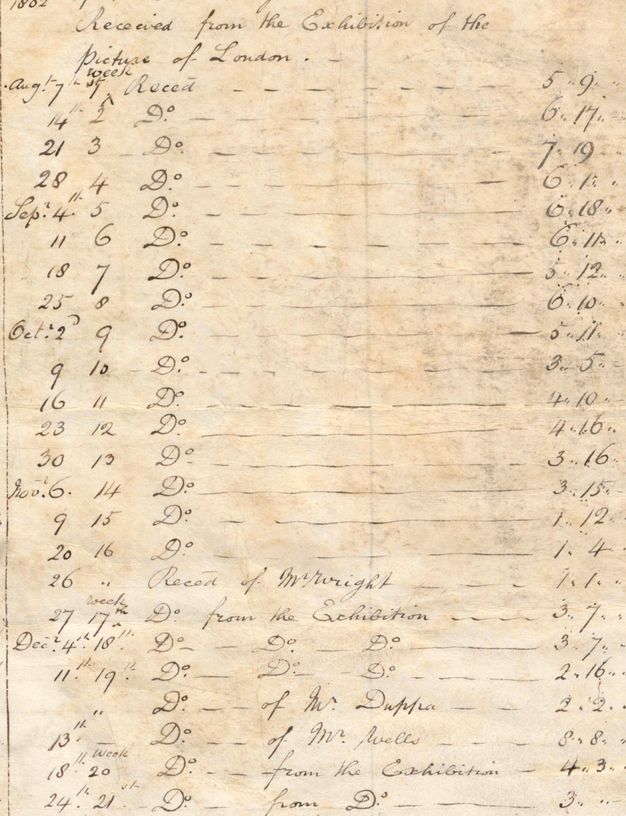 1802
Received from the Exhibition of the
Picture of London. -
week
Augt 7th 1st Receed — 5 „ 9 „
14th 2 Do — 6 „ 17 „
21 3 Do — 7 „ 19
28 4 Do — 6 „ 1 „
Sepr 4th 5 Do — 6 „ 18 „
11 6 Do — 6 „ 11 „
18 7 Do — 5 „ 12
25 8 Do — 6 „ 10 „
Octr 2d 9 Do — 5 „ 11 „
9 10 Do — 3 „ 5 „
16 11 Do — 4 „ 10 „
23 12 Do — 4 „ 16 „
30 13 Do — 3 „ 16 „
Novr 6. 14 Do — 3 „ 15 „
9 15 Do — 1 „ 12 „
20 16 Do — 1 „ 4 „
26 „ Receed of Mr Wright — 1 „ 1 „
week
27 17th Do from the Exhibition — 3 „ 7 „
Decr 4th 18th Do — Do Do — 3 „ 7 „
11th 19th Do — Do Do — 2 „ 16 „
„ Do — of Mr Duppa — 2 „ 2 „
13th — Do — of Mr Wells — 8 „ 8 „
week
18th 20 Do — from the Exhibition — 4 „ 3 „
24th 21st Do — from Do — 3 „ „